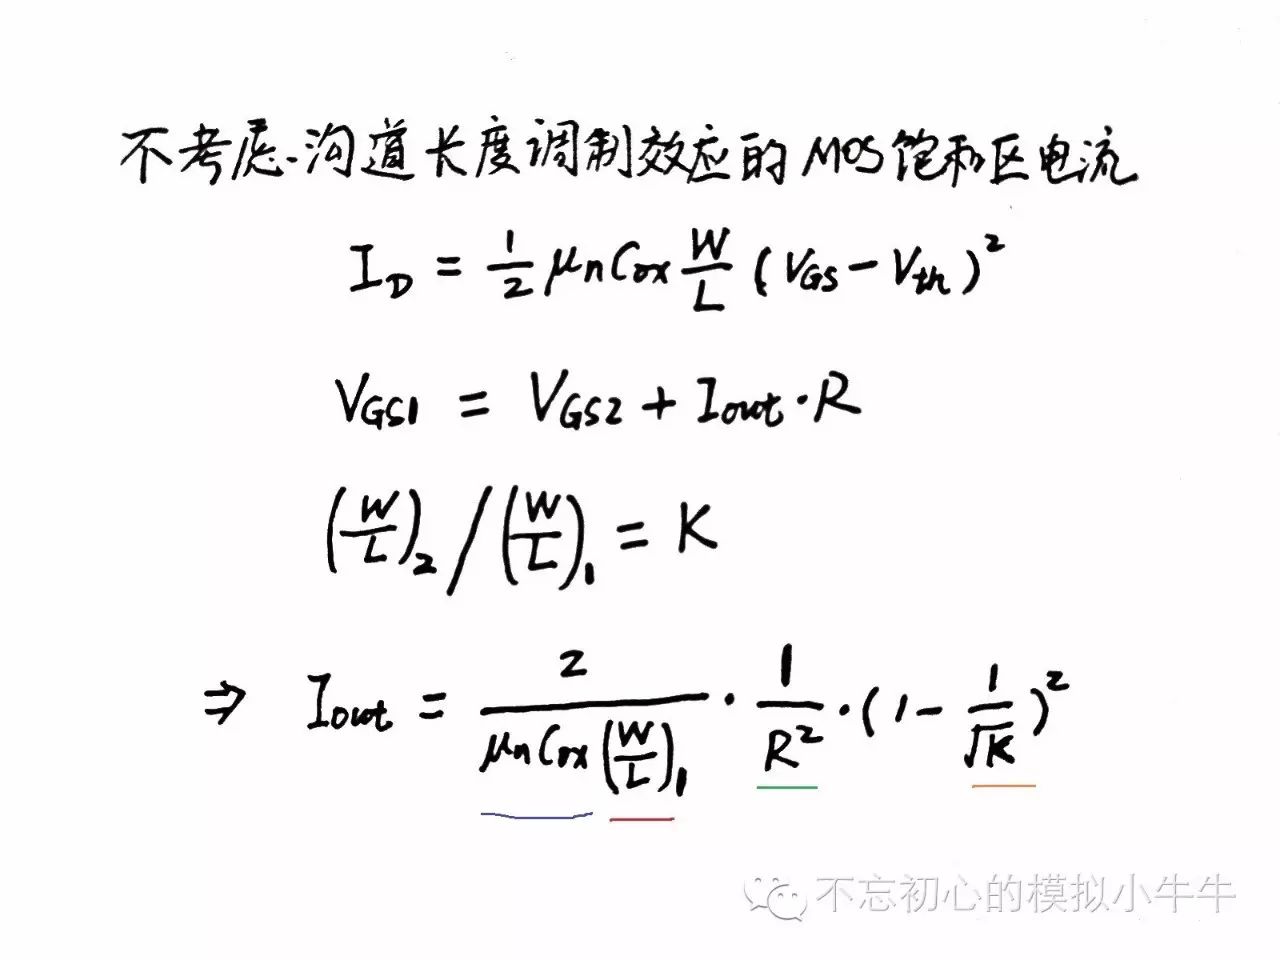 不考虑沟道长度调制效应的MOS饱和区电流
I_D = \frac{1}{2} μnCox \frac{W}{L} (V_{GS} - V_{th})^2
V_{GS1} = V_{GS2} + I_{out} · R
(\frac{W}{L})_2 / (\frac{W}{L})_1 = K
⇒ I_{out} = \frac{2}{μnCox (\frac{W}{L})_1} · \frac{1}{R^2} · (1 - \frac{1}{\sqrt{K}})^2
不忘初心的模拟小牛牛